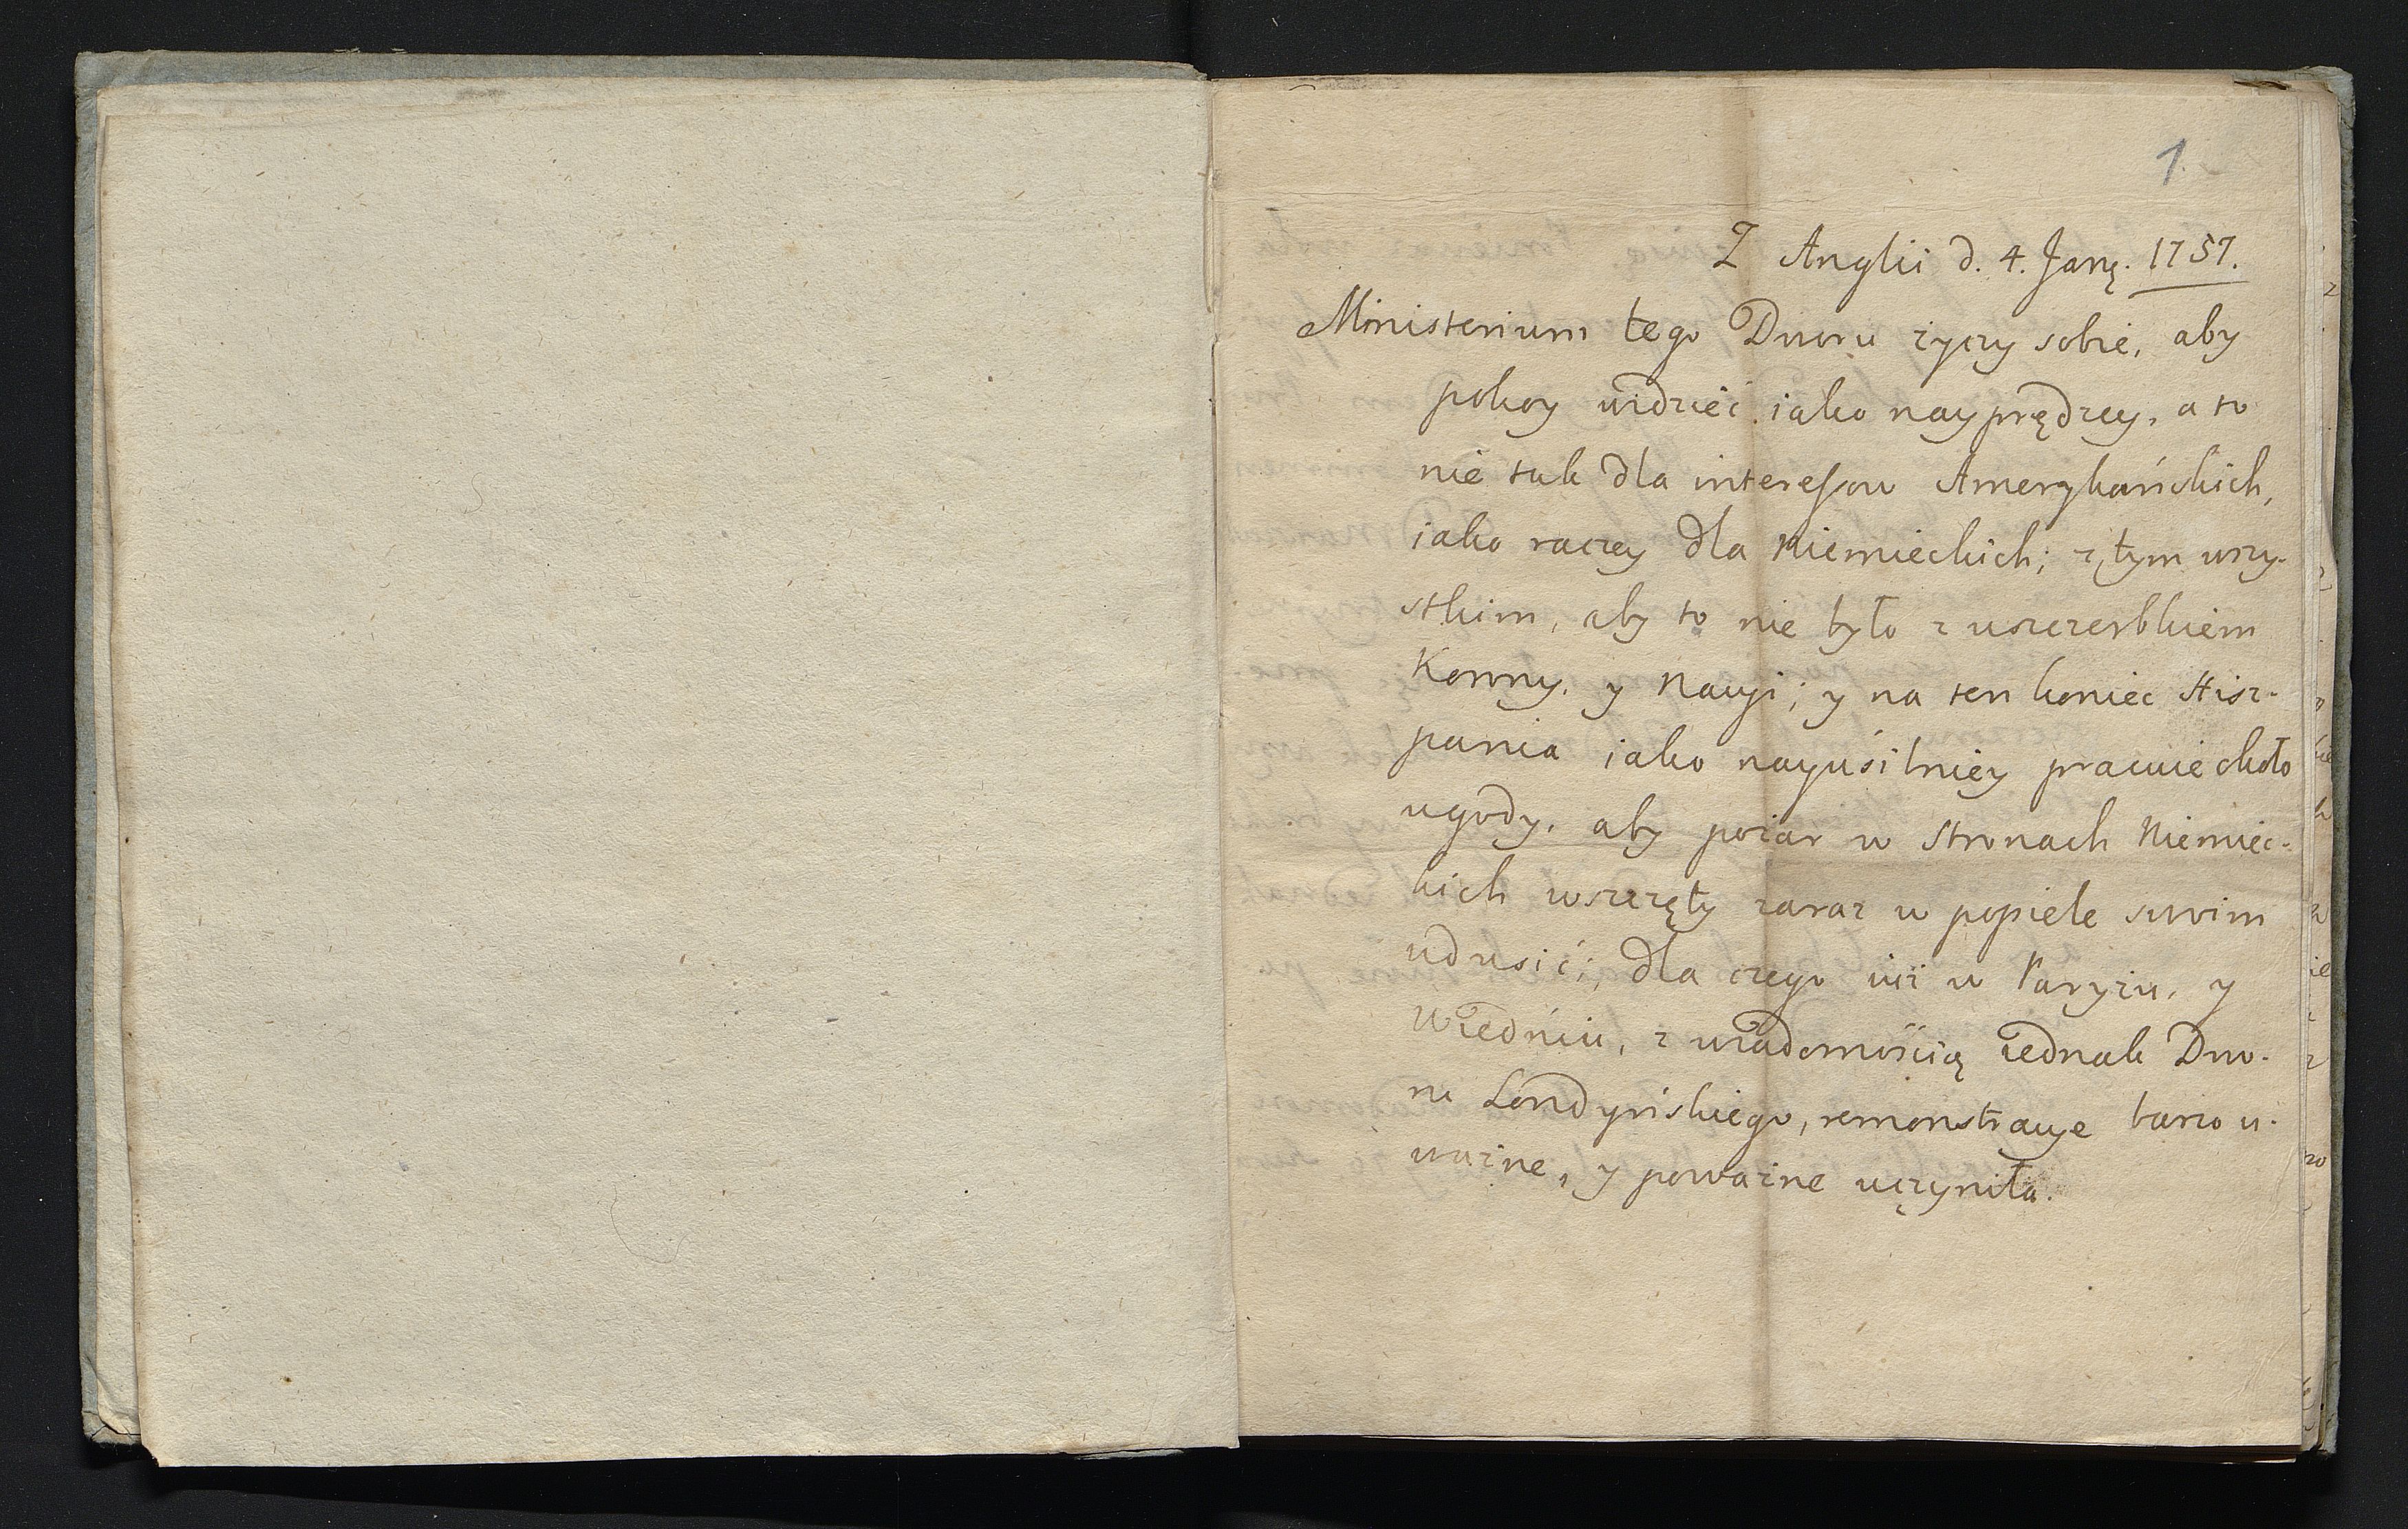 1
Z Anglii d. 4. Janę. 1757.
Ministerium tego Dworu zyczy sobie, aby
pokoy widzieć iako nayprędzey, a to
nie tak dla interessow Amerykańskich,
iako raczey dla Niemieckich; z tym wszy-
stkim, aby to nie było z uszczerbkiem
Korony, y Nacyi; y na ten koniec Hisz-
pania iako nayusilniey pracuie około
ugody, aby pożar w stronach Niemiec-
kich wszczęty zaraz w popiele swoim
udusić; dla czego iuż w Paryżu, y
Wiedniu, z wiadomością iednak Dwo-
ru Londyńskiego, remonstracye barzo u-
ważne, y poważne uczyniła.